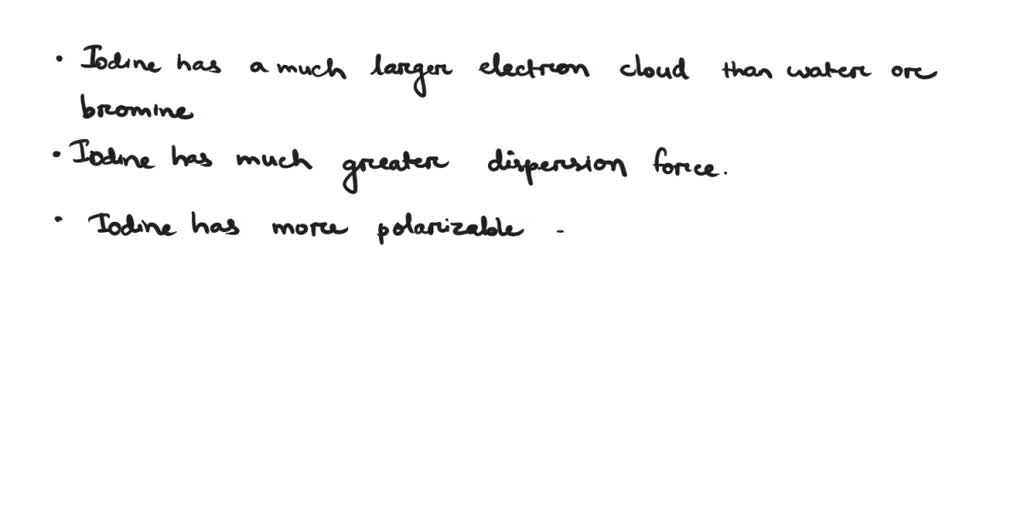 • Iodine has a much larger electron cloud than water or
bromine
• Iodine has much greater dispersion force.
• Iodine has more polarizable -